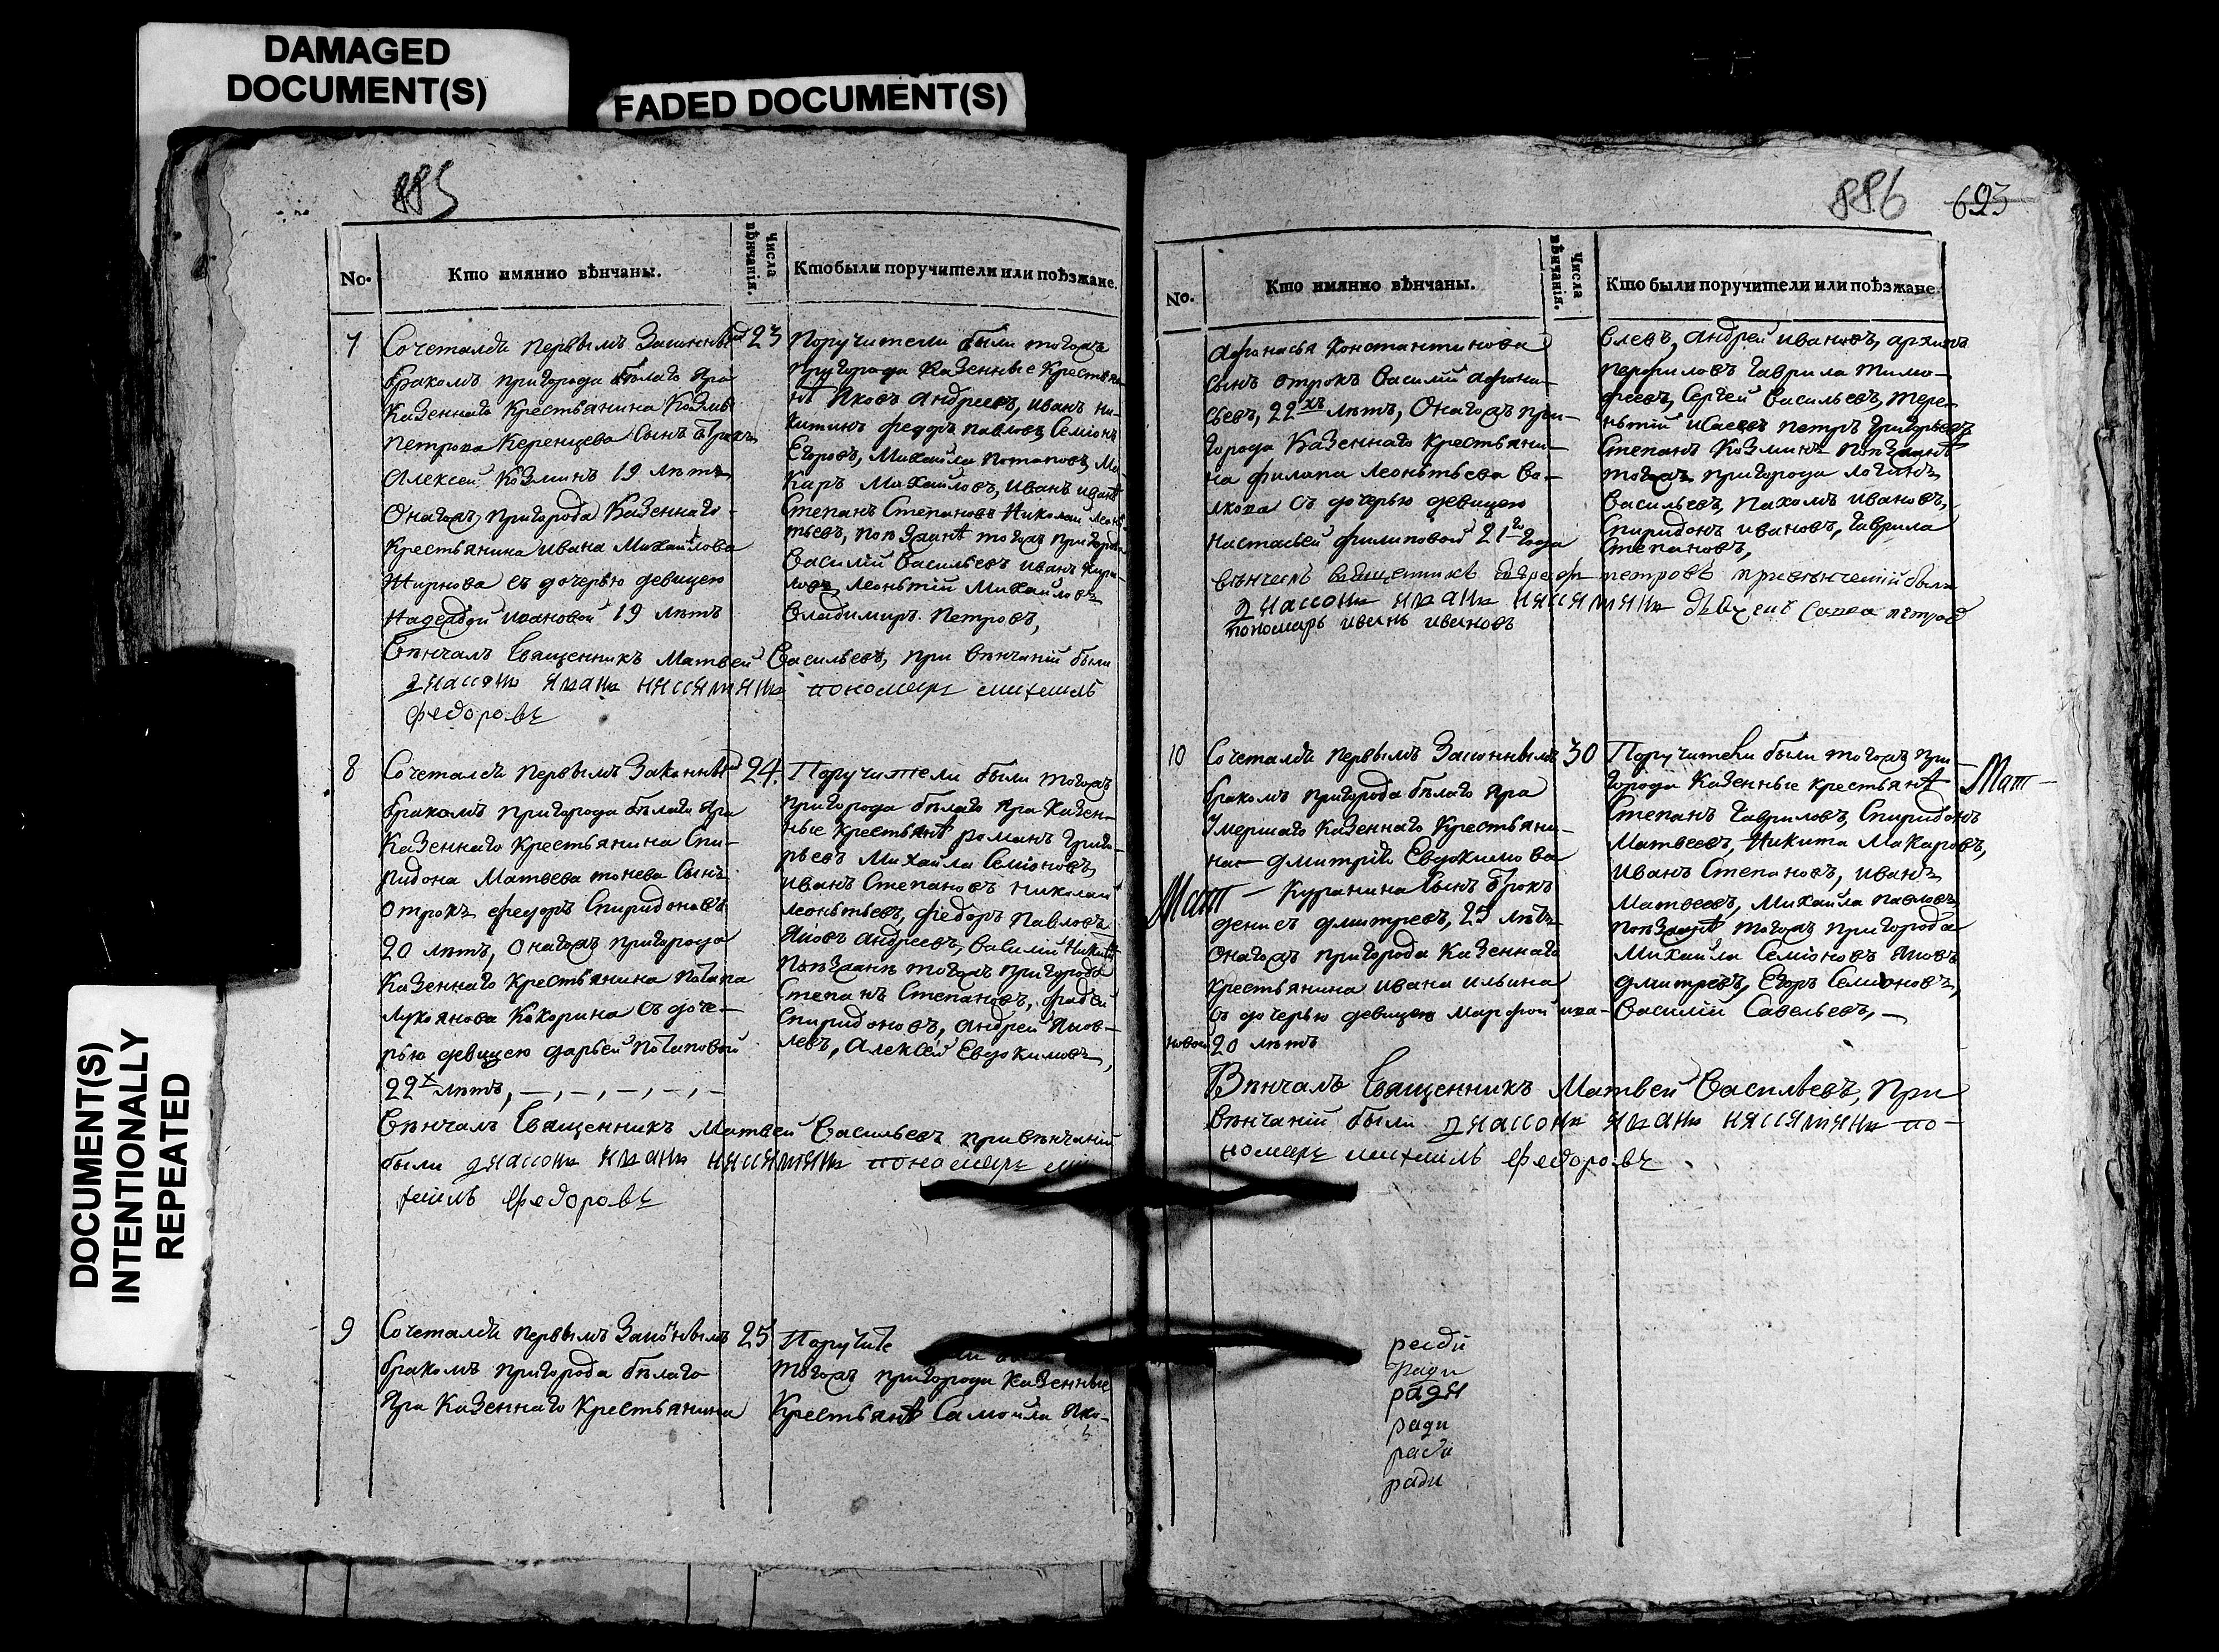 DAMAGED
DOCUMENT(S)
FADED DOCUMENT(S)
885
No.
Кто имянно вѣнчаны.
Числа
вѣнчанія.
Кто были поручители или поѣзжане.
7
Сочетался первымъ Законны
бракомъ пригорода бѣлаго Яра
Казеннаго Крестьянина Козмы
Петрова Керенцева Сынъ отрокъ
Алексей Козминъ 19 лѣтъ
Онагожъ пригорода Казеннаго
Крестьянина Ивана Михайлова
Жирнова съ дочерью девицею
Надеждой Ивановой 19 лѣтъ
23
Поручители были тогожъ
пригорода Казенные Крестьяне
Яковъ Андреевъ, Иванъ Ни-
китинъ федоръ павловъ, Семіонъ
Егоровъ, Михайла Потаповъ, Ма-
каръ Михайловъ, Иванъ
Степанъ Степановъ Николай Леонь-
тьевъ, поѣзжанѣ тогожъ пригорода
Василій Васильевъ Иванъ Кири-
ловъ, Леоньтій Михайловъ
Владимиръ Петровъ,
Вѣнчалъ Священникъ Матвей Васильевъ, при вѣнчаніи были
пономарь михаилъ
федоровъ
8
Сочетался первымъ Законны
бракомъ пригорода бѣлаго Яра
Казеннаго Крестьянина Спи-
ридона Матвева тонева Сынъ
отрокъ федоръ Спиридоновъ
20 лѣтъ, онагожъ пригорода
Казеннаго Крестьянина Потапа
Лукоянова Кокорина съ доче-
рью девицею дарьей Потаповой
22х лѣтъ,
24.
Поручители были тогожъ
пригорода бѣлаго Яра Казен-
ные крестьянѣ романъ Григо-
рьевъ Михайла Семіоновъ
Иванъ Степановъ Николай
Леоньтьевъ, федоръ Павловъ
Яковъ Андреевъ, василий Никит
Поѣзжанѣ тогожъ пригорода
Степанъ Степановъ, фадей
Спиридоновъ, Андрей Яков-
левъ, Алексѣй Евдокимовъ,
Вѣнчалъ Священникъ Матвей Васильевъ при вѣнчаніи
были пономарь ми
хаилъ федоровъ
9
Сочетался первымъ Законнымъ
бракомъ пригорода бѣлаго
Яра Казеннаго Крестьянина
25
Поручите
тогожъ пригорода Казенные
Крестьянѣ Самойла Яко-
DOCUMENT(S)
INTENTIONALLY
REPEATED
886
693
No.
Кто имянно вѣнчаны.
Числа
вѣнчанія.
Кто были поручители или поѣзжане.
Афанасья Константинова
Сынъ отрокъ Василій Афона-
сьевъ, 22хъ лѣтъ, Онагожъ при-
города Казеннаго Крестьяни-
на филипа Леоньтьева
съ дочерью девицею
Настасьей филиповой 21го года
влевъ, Андрей Ивановъ, архипъ
перфиловъ Гаврила Тимо-
феевъ, Сергей Васильевъ, Тере-
ньтій Исаевъ петръ Григорьевъ
Степанъ Козминъ Поѣзжанѣ
тогожъ пригорода логинъ
Васильевъ, Пахомъ Ивановъ,
Спиридонъ Ивановъ, Гаврила
Степановъ,
петровъ
пономарь иванъ ивановъ
10
Сочетался первымъ Законнымъ
бракомъ пригорода бѣлаго Яра
Умершаго Казеннаго Крестьяни-
на дмитрія Евдокимова
Мат
Куранина Сынъ отрокъ
денисъ дмитревъ, 25 лѣтъ
Онагожъ пригорода Казеннаго
Крестьянина Ивана Ильина
съ дочерью девицею Марфой ива-
новой 20 лѣтъ
30
Поручители были тогожъ при-
города Казенные крестьянѣ
Степанъ Гавриловъ, Спиридонъ
Матвеевъ, Никита Макаровъ,
Иванъ Степановъ, Иванъ
Матвеевъ, Михайла павловъ
поѣзжанѣ тогожъ пригорода
Михайла Семіоновъ Яковъ
дмитревъ, Егоръ Семионовъ,
Василій Савельевъ,
Мат
Вѣнчалъ Священникъ Матвей Васильевъ, при
вѣнчаніи были по-
номарь михаилъ федоровъ
ради
ради
ради
ради
ради